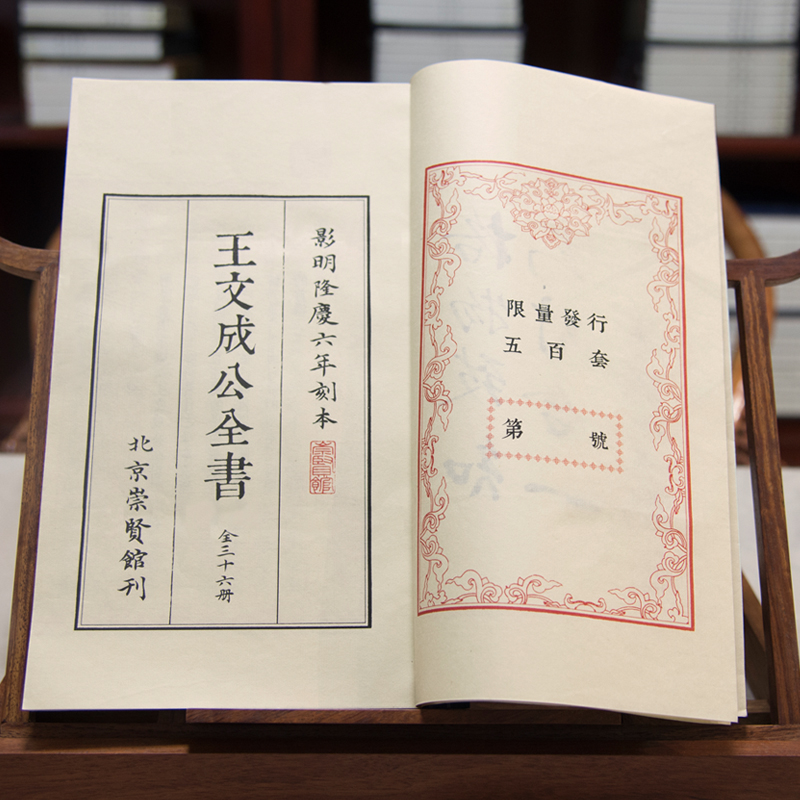 限量發行
五百套
第 號
影明隆慶六年刻本
崇賢館
王文成公全書
全三十六册
北京崇賢館刊